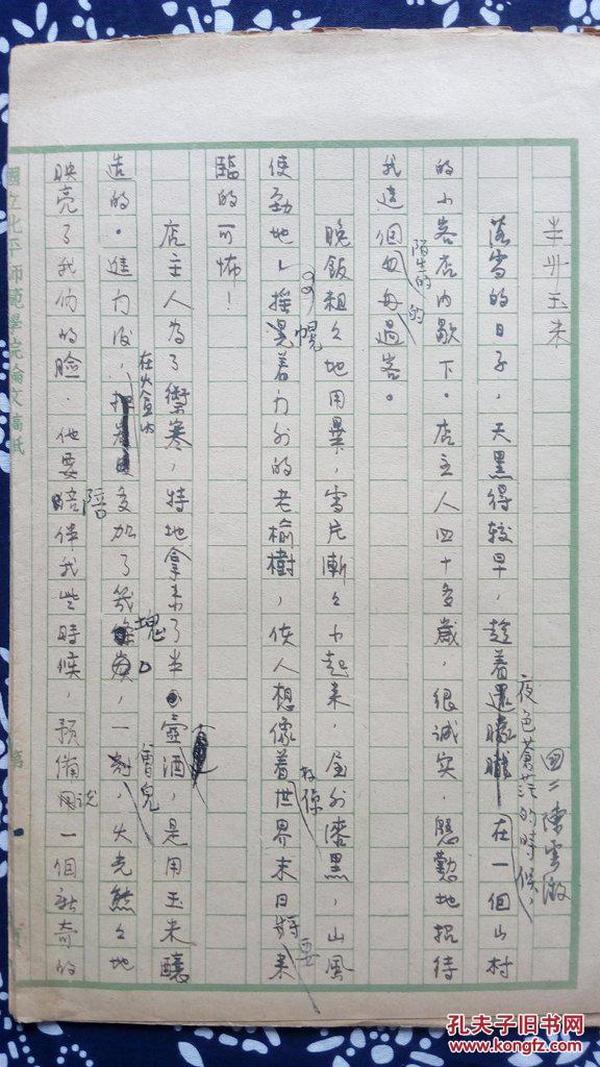 半升玉米
國二 陳雲澂
落雪的日子，天黑得較早，趁着還矇矓在一個山村
夜色蒼茫的時候，
的小客店內歇下。店主人四十多歲，很誠实，慇勤地招待
我這個匆匆過客。
陌生的 的
晚飯粗々地用畢，雪片漸々小起來，屋外漆黑，山風
使勁地搖晃着门外的老榆樹，使人想像着世界末日將來
幌
要
臨的可怖！
店主人為了禦寒，特地拿來了半壺酒，是用玉米釀
造的。進门後，多加了幾塊，一火光熊々地
在火盆內
會兒
映亮了我们的臉．他要陪伴我些時候，預備說一個新奇的
陪
國立北平師範學院論文稿紙
第
頁
孔夫子旧书网
www.kongfz.com